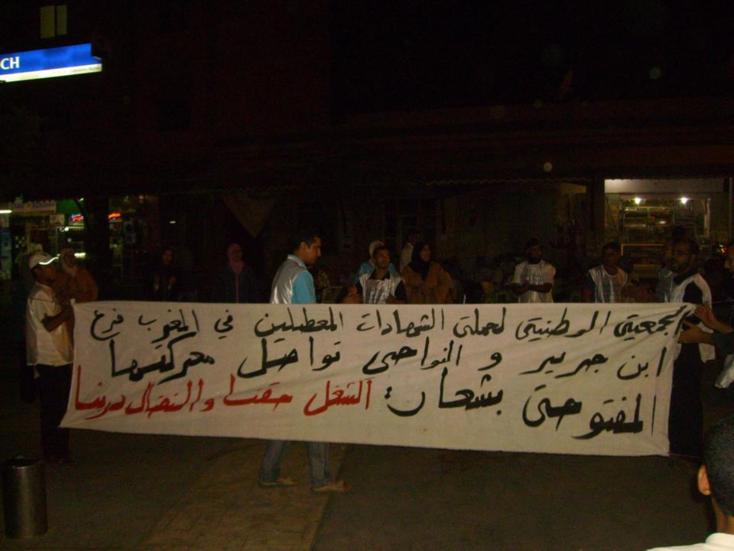 CH
الجمعية الوطنية لحملة الشهادات المعطلين في المغرب فرع
ابن جرير و النواحي تواصل معركتها
المفتوحة بشعار: الشغل حقنا والنضال دربنا